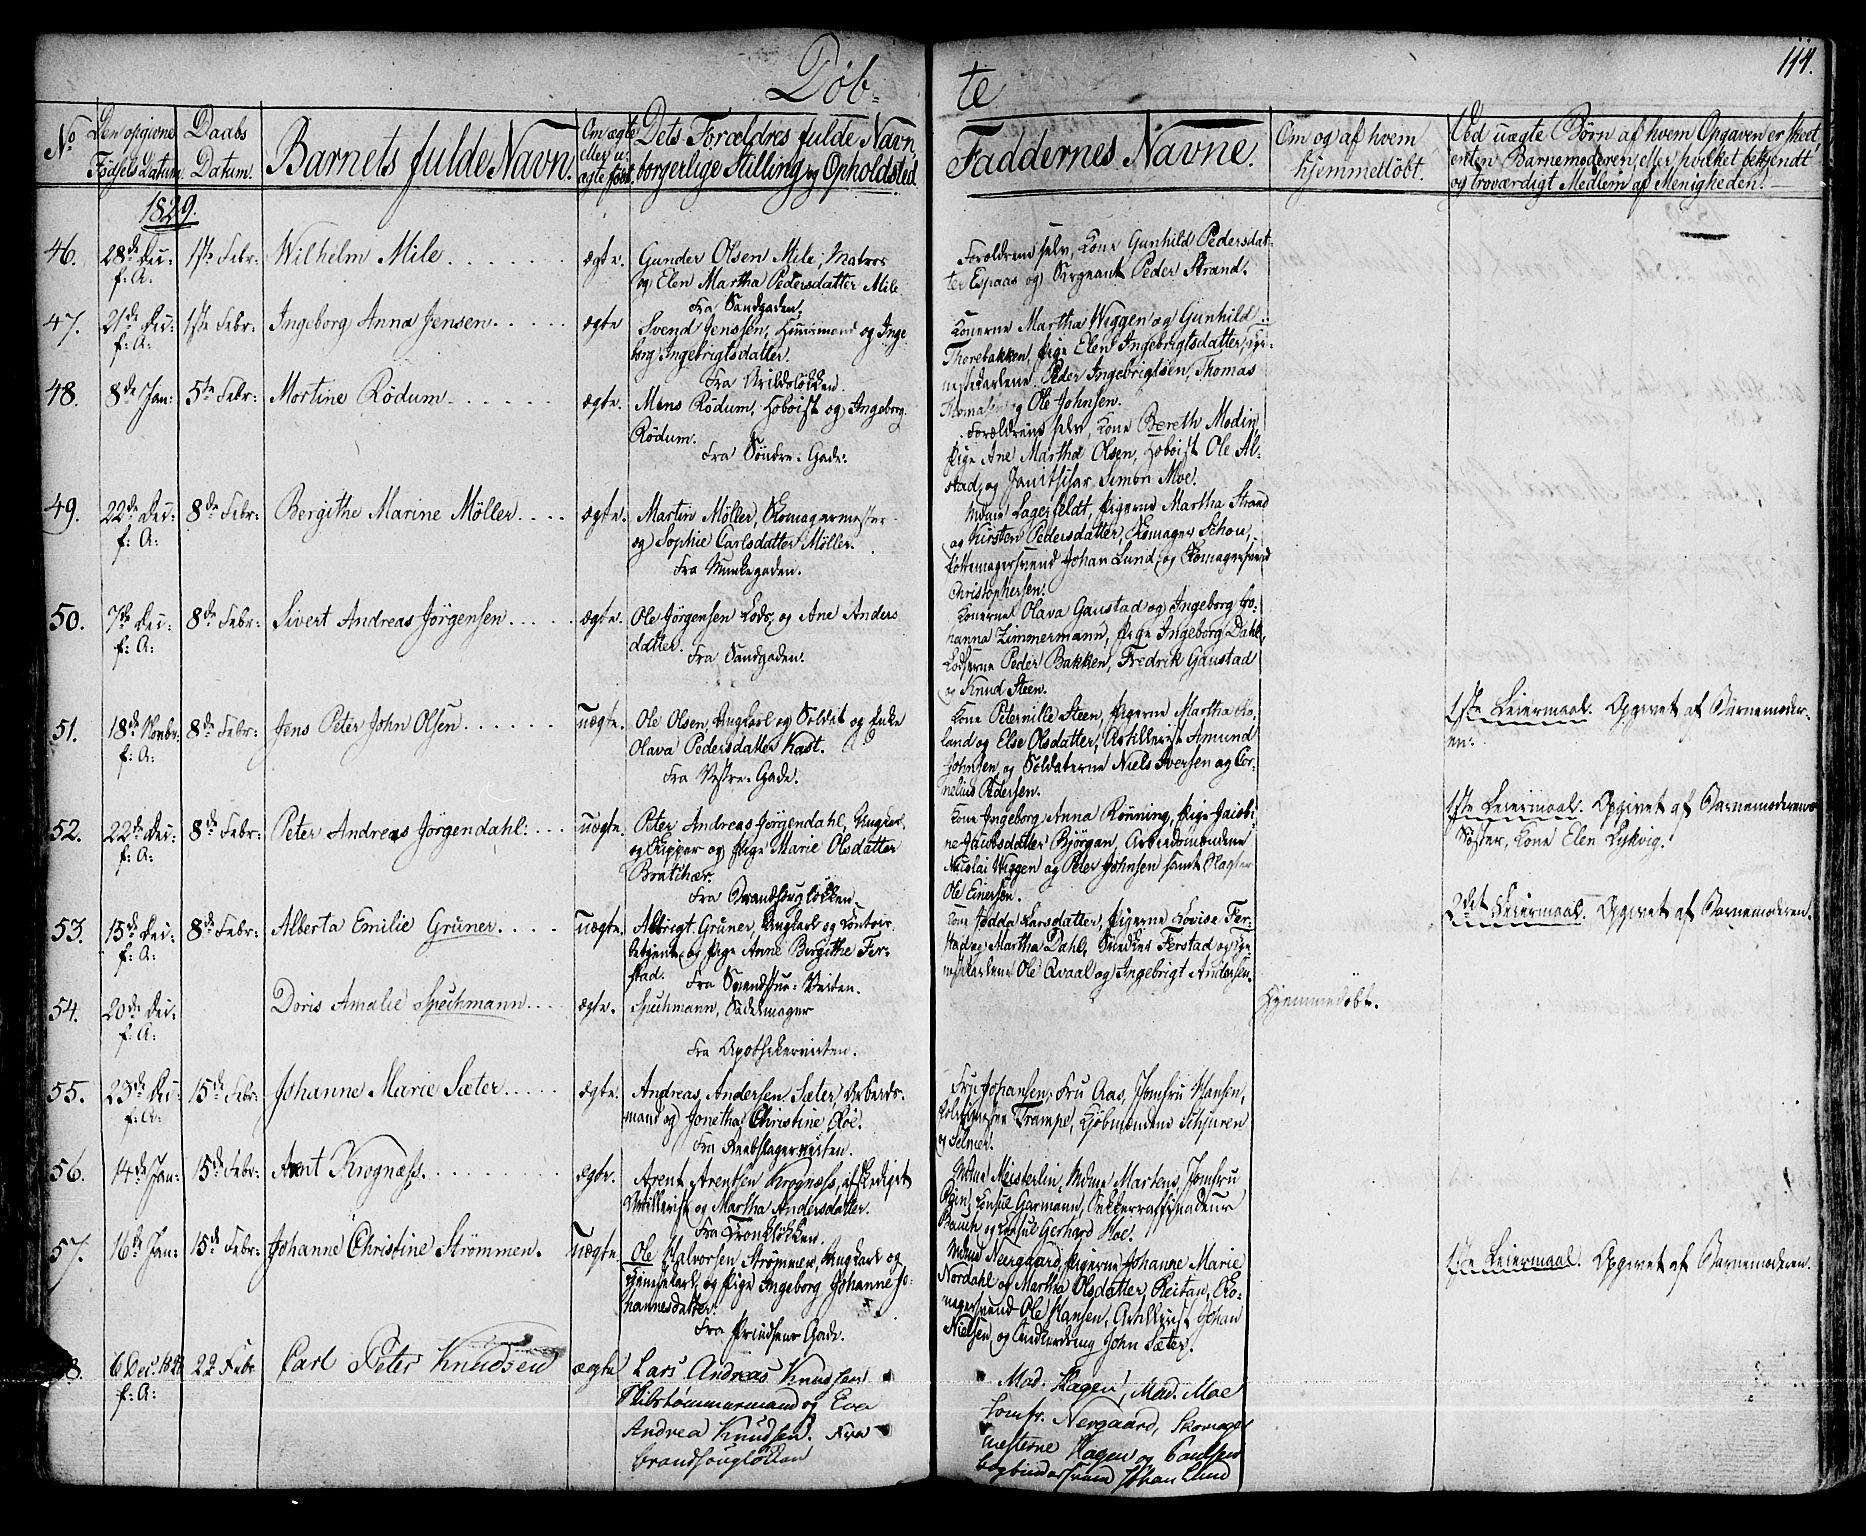 Døb-
te
114.
No
Den opgivne Fødsels Datum
Daabs Datum.
Barnets fulde Navn.
Om ægte eller uægte født.
Dets Forældres fulde Navn, borgerlige Stilling og Opholdsted
Faddernes Navne.
Om og af hvem hjemmedøbt.
Ved uægte Børn af hvem Opgaven er skeet, enten Barnemoderen, eller hvilket bekjendt og troværdigt Medlem af Menigheden!
1829.
46.
28de Dec: f: A:
1ste Febr:
Wilhelm Mile
ægte.
Gunder Olsen Mile, Matros
og Elen Martha Pedersdatter Mile
Fra Sandgaden.
Forældrene selv, Kone Gunhild Pedersdat-
ter Espaas og Sergeant Peder Strand.
47.
21de Dec: f: A:
1ste Febr:
Ingeborg Anna Jensen
ægte
Svend Jenssen, Huusmand og Inge
borg Ingebrigtsdatter.
Fra Arildsløkken.
Konerne Martha Wiggen og Gunhild
Thorebakken, Pige Elen Ingebrigtsdatter,
Peder Ingebrigtsen, Thomas
Thomasen og Ole Johnsen.
48.
8de Jan:
5te Febr:
Mortine Rödum
ægte.
Mons Rödum, Hoboist og Ingeborg
Rödum.
Fra Söndre-Gade.
Forældrene selv, Kone Bereth Modin
Pige Ane Martha Olsen, Hoboist Ole Al-
stad, og Janitshar Simon Moe.
49.
22de Dec: f: A:
8de Febr:
Bergithe Marine Möller
ægte.
Martin Möller, Skomagermester
og Sophie Carlsdatter Möller.
Fra Munkegaden.
Mdme Lagesfeldt, Pigerne Martha Strand
og Kirsten Pedersdatter, Skomager Schou,
Pottemagersvend Johan Lund, og Skomagersvend
Christophersen.
50.
7de Dec: f: A:
8de Febr:
Sivert Andreas Jörgensen
ægte.
Ole Jörgensen Lods, og Ane Anders
datter.
Fra Sandgaden.
Konerne Olava Gaustad og Ingeborg Jo-
hanna Zimmermann, Pige Ingeborg Dahl,
Lodserne Peder Bakken, Fredrik Gaustad
og Knud Steen.
51.
18de Novbr: f: A:
8de Febr:
Jens Peter John Olsen
uægte.
Ole Olsen, Ungkarl og Soldat og Enke
Olava Pedersdatter Kast.
Fra Vestre-Gade.
Kone Peternille Steen, Pigerne Martha Ko-
land og Else Olsdatter, Artillerist Amund
Johnsen og Soldaterne Niels Iversen og Cor-
nelius Pedersen.
1ste Leiermaal. Opgivet af Barnemoder-
en.
52.
22de Dec: f: A:
8de Febr:
Peter Andreas Jörgendahl
uægte.
Peter Andreas Jörgendahl, Ungkarl
og Skipper og Pige Marie Olsdatter
Bratthær.
Fra Brandsougløkken.
Kone Ingeborg Anna Rönning, Pige Jacobi-
ne Jacobsdatter Bjørgan, Arbeidsmændene
Nicolai Wiggen og Peter Johnsen samt Slagter
Ole Einersen.
1ste Leiermaal. Opgivet af Barnemoderens
Söster, Kone Elen Lykvig.
53.
15de Dec: f: A:
8de Febr:
Alberta Emilie Gruner
uægte.
Albrigt Gruner, Ungkarl og Contoir
betjent, og Pige Anne Bergithe Fer-
stad.
Fra Svendsens-Veiten.
Kone Jødda Larsdatter, Pigerne Lovise Fer-
stad og Martha Dahl, Snedker Ferstad og
Ole Qvaal og Ingebrigt Andersen.
2det Leiermaal. Opgivet af Barnemoderen.
54.
20de Dec: f: A:
Doris Amalie Spechmann
ægte.
Spechmann, Saddelmager
Fra Apothekerveiten.
Hjemmedøbt.
55.
23de Dec: f: A:
15de Febr:
Johanne Marie Sæter
ægte.
Andreas Andersen Sæter, Arbeids-
mand og Jonetha Christine Roe.
Fra Reebslagerveiten.
Fru Johansen, Fru Aas, Jomfru Hansen,
Trampe, Kjøbmændene Schjuren
og Selmer.
56.
14de Jan:
15de Febr:
Arnt Krognæss
ægte.
Arent Arentsen Krognæss, afskediget
Artillerist og Martha Andersdatter.
Fra Ironkløkken.
Mdme Meisterlin, Mdme Martens, Jomfru
Bjen, Consul Garmann, Sukkerraffinadeur
Bauck og Consul Gerhard Hoe.
57.
16de Jan:
15de Febr:
Johanne Christine Strömmen.
uægte.
Ole Halvorsen Strömmen, Ungkarl og
og Pige Ingeborg Johanne Jo-
hannesdatter.
Fra Prindsens Gade.
Mdme Neergaard, Pigerne Johanne Marie
Nordahl og Martha Olsdatter Reitan, Sko-
magersvend Ole Hansen, Artillerist Johan
Nielsen, og John Sæter.
1ste Leiermaal. Opgivet af Barnemoderen.
58.
6 Dec. 1828 f: A:
22 Febr
Carl Peter Knudsen
ægte
Lars Andreas Knudsen
Skibstømmermand og Eva
Andrea Knudsen. Fra
Brandsougløkken
Mad. Hagen, Mad. Moe
Jomfr. Nergaard, Skomager
mesterne Hagen og Paulsen
Bogbindersvend Johan Lund